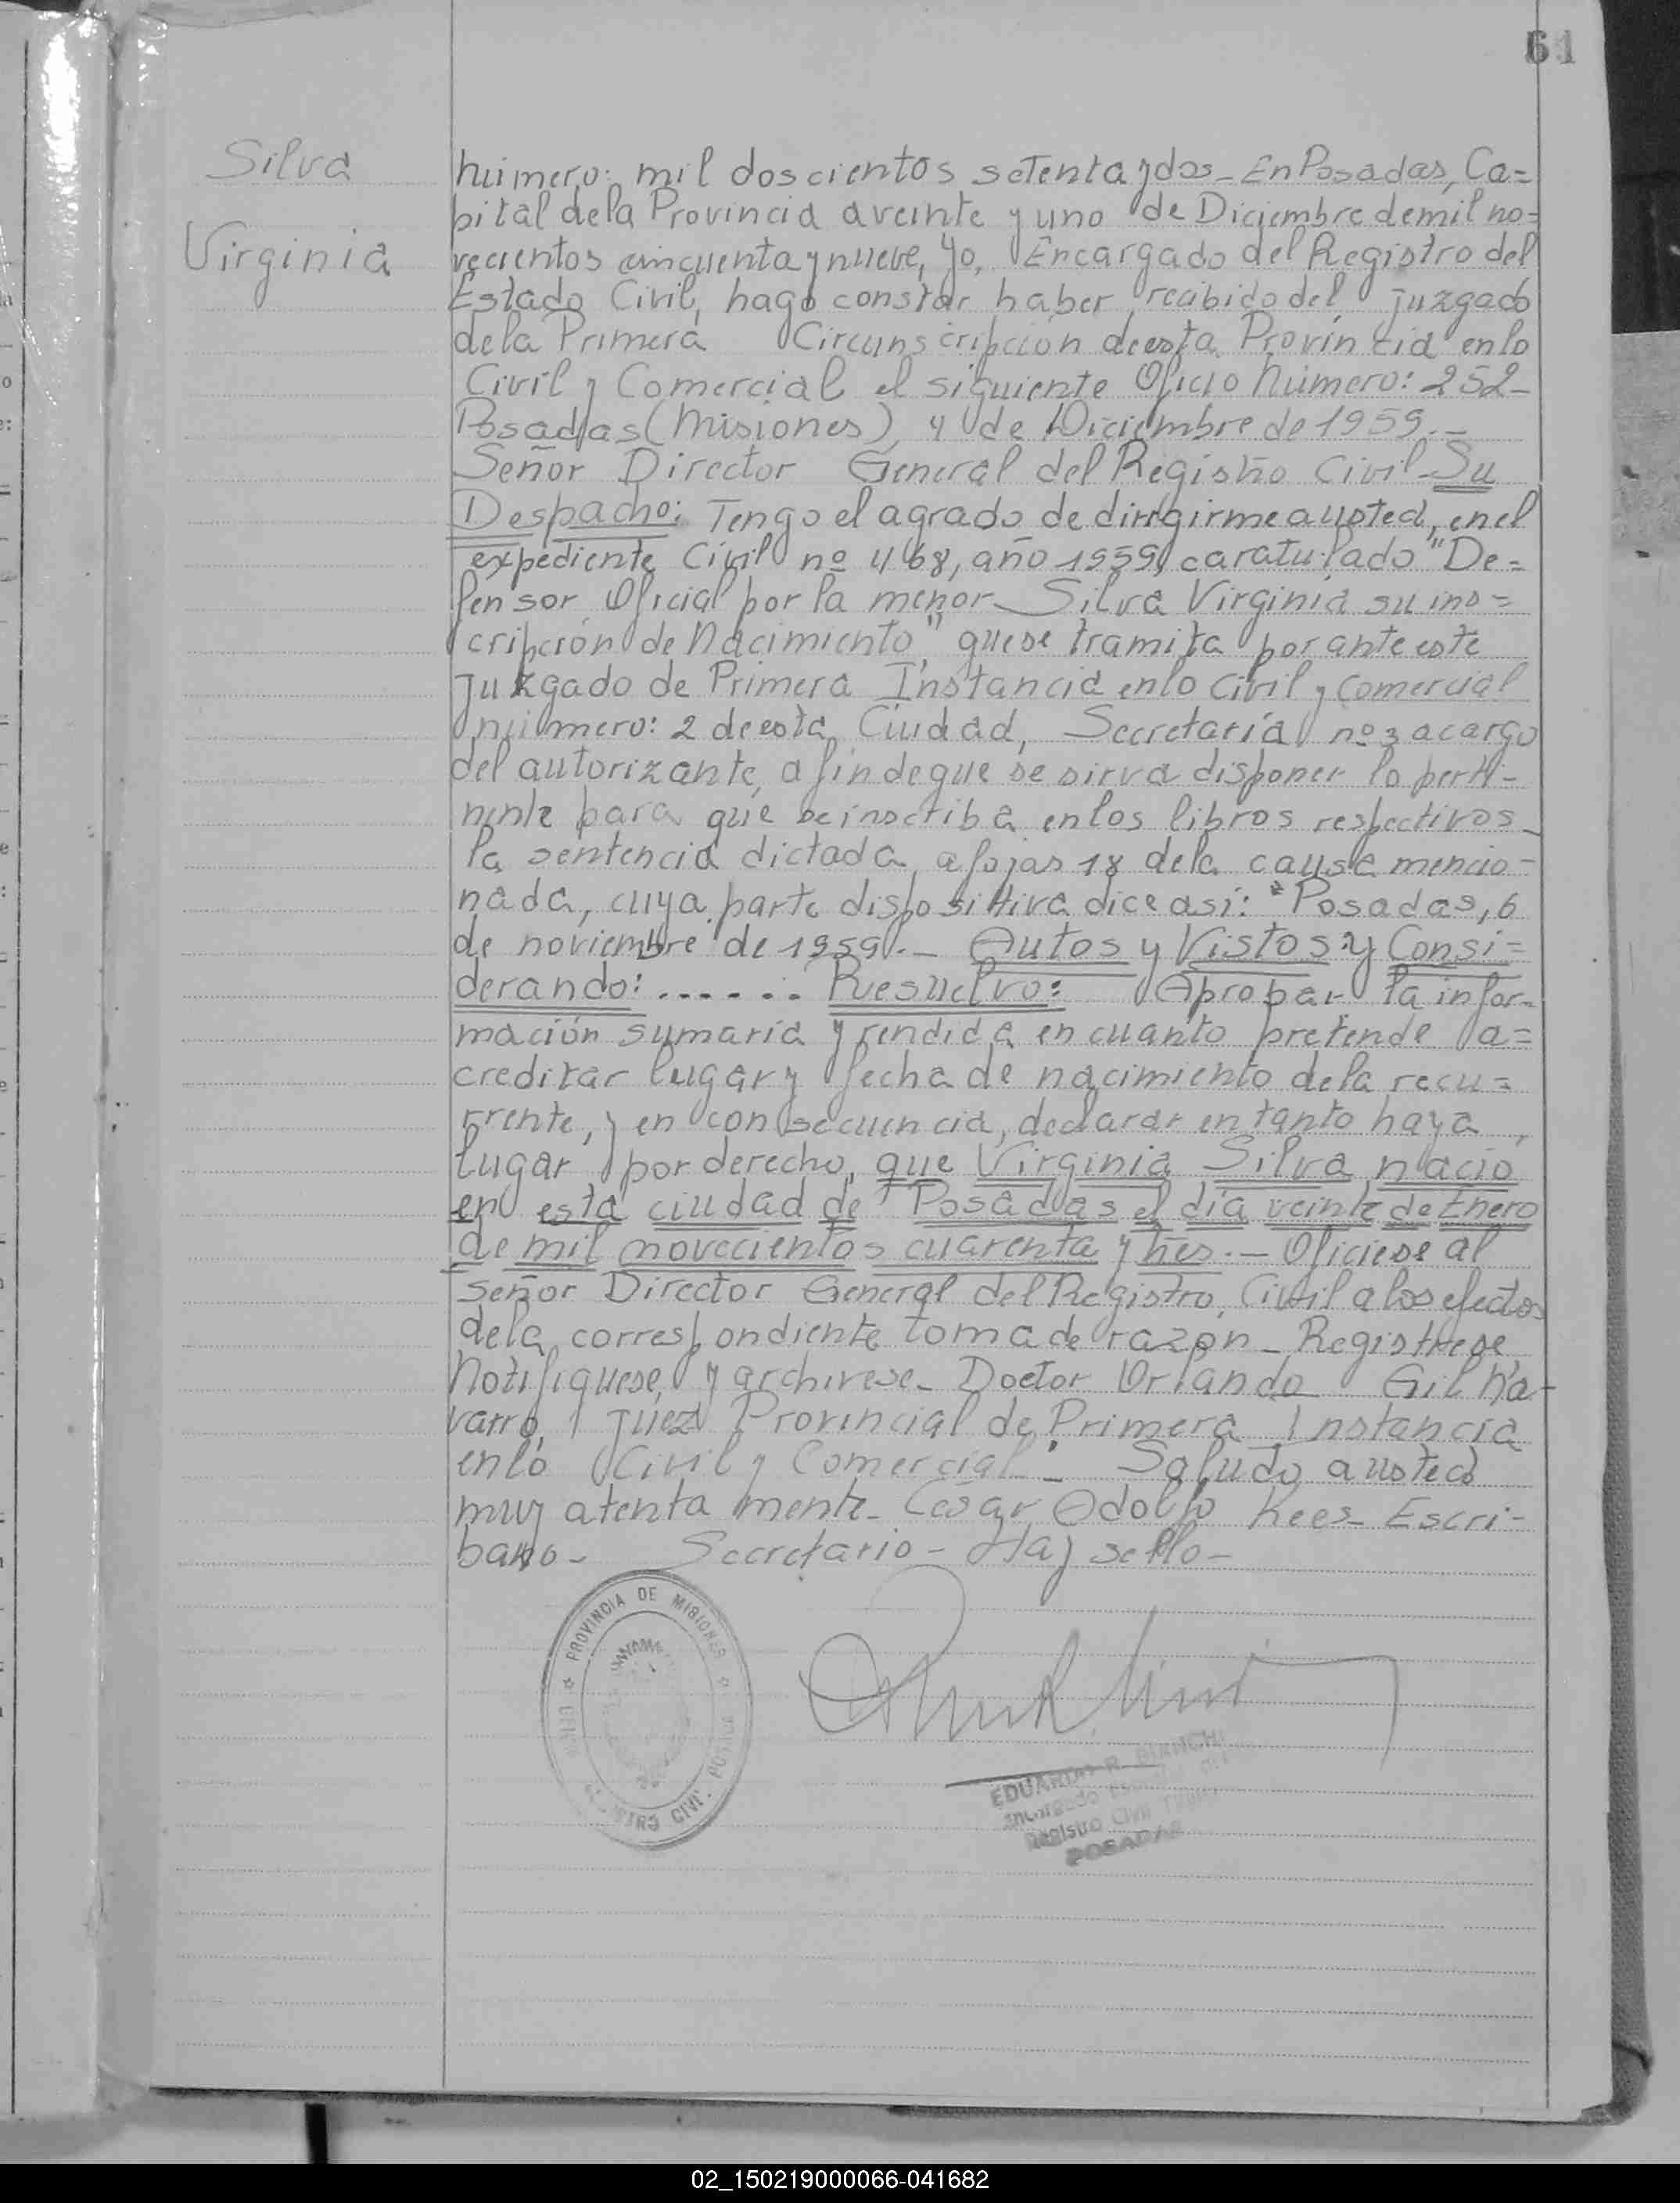 61
Silva
Virginia
Número: mil doscientos setenta y dos - En Posadas, Ca=
pital de la Provincia a veinte y uno de Diciembre de mil no=
vecientos cincuenta y nueve, Yo, Encargado del Registro del
Estado Civil, hago constar haber recibido del juzgado
de la Primera Circunscripción de esta Provincia en lo
Civil y Comercial el siguiente Oficio Número: 252-
Posadas (Misiones), 4 de Diciembre de 1959.-
Señor Director General del Registro Civil - Su
Despacho: Tengo el agrado de dirigirme a usted, en el
expediente Civil nº 468, año 1959, caratulado "De=
fensor Oficial por la menor Silva Virginia su ins=
cripción de Nacimiento", que se tramita por ante este
juzgado de Primera Instancia en lo Civil y Comercial
número: 2 de esta Ciudad, Secretaría nº 3 a cargo
del autorizante, a fin de que se sirva disponer lo perti-
nente para que se inscriba en los libros respectivos
la sentencia dictada a fojas 18 de la causa mencio-
nada, cuya parte dispositiva dice asi: "Posadas, 6
de noviembre de 1959.- Autos y Vistos: y Consi=
derando: ...... Resuelvo: Aprobar la infor-
mación sumaria y rendida en cuanto pretende a=
creditar lugar y fecha de nacimiento de la recu=
rrente, y en consecuencia, declarar en tanto haya
lugar por derecho, que Virginia Silva nació
en esta ciudad de Posadas el día veinte de Enero
de mil novecientos cuarenta y tres.- Oficiese al
Señor Director General del Registro Civil a los efectos
de la correspondiente toma de razón - Registrese
Notifiquese, y archivese - Doctor Orlando Gil Na-
varro, Juez Provincial de Primera Instancia
en lo Civil y Comercial". Saludo a usted
muy atenta mente - César Odolfo Kees - Escri-
bano - Secretario - Hay sello -
PROVINCIA DE MISIONES
REGISTRO CIVIL POSADAS
EDUARDO R. BIANCHI
Encargado
Registro Civil
POSADAS
02_150219000066-041682